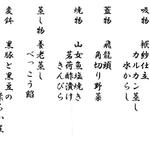 吸物
袱紗仕立
カルカン蒸し
水からし
蓋物
飛龍頭
角切り野菜
焼物
山女魚塩焼き
茗荷酢漬け
きんぴら
蒸し物
養老蒸し
べっこう餡
変鉢
黒豚と黒豆の